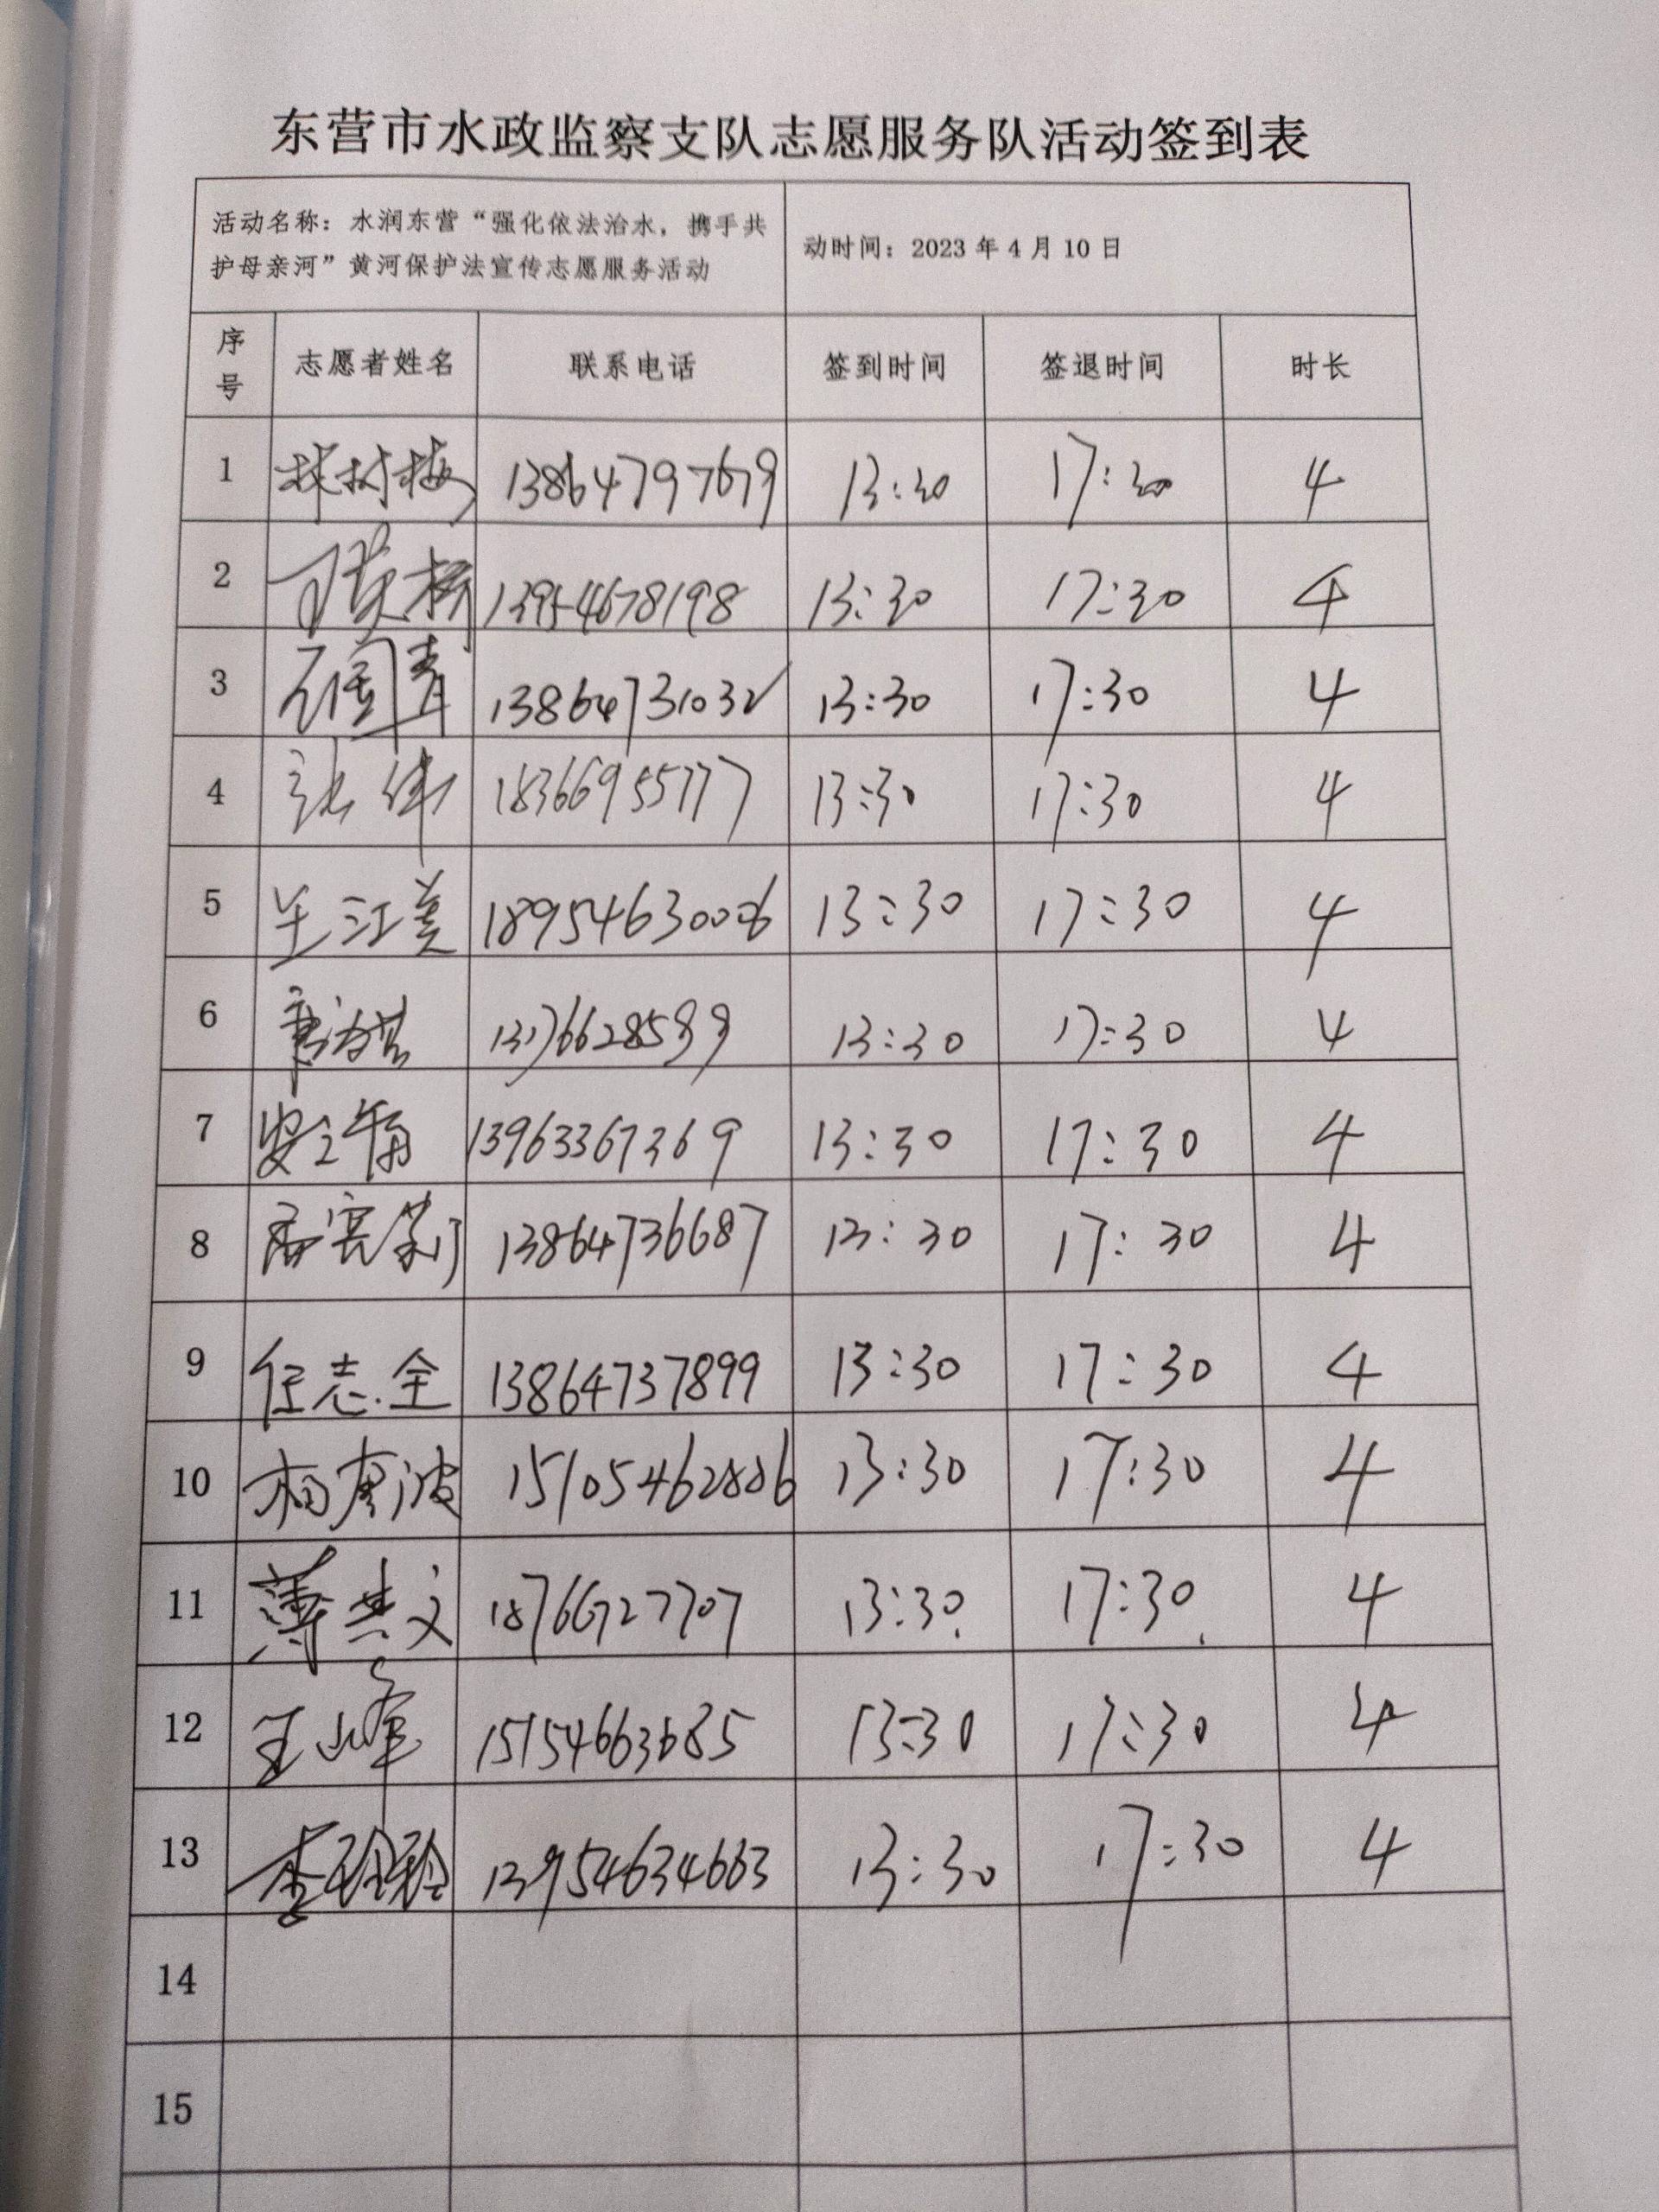 东营市水政监察支队志愿服务队活动签到表
活动名称：水润东营“强化依法治水，携手共
护母亲河”黄河保护法宣传志愿服务活动
动时间：2023 年 4 月 10 日
序号 志愿者姓名 联系电话 签到时间 签退时间 时长
1 林树梅 13864797679 13:30 17:30 4
2 13954678198 13:30 17:30 4
3 石国青 13864731032 13:30 17:30 4
4 张伟 18366955777 13:30 17:30 4
5 王江美 18954630006 13:30 17:30 4
6 13176628599 13:30 17:30 4
7 13963367369 13:30 17:30 4
8 13864736687 13:30 17:30 4
9 任志全 13864737899 13:30 17:30 4
10 15105462886 13:30 17:30 4
11 薄其文 18766727707 13:30 17:30 4
12 王山峰 15154663685 13:30 17:30 4
13 李玲玲 13954634663 13:30 17:30 4
14
15